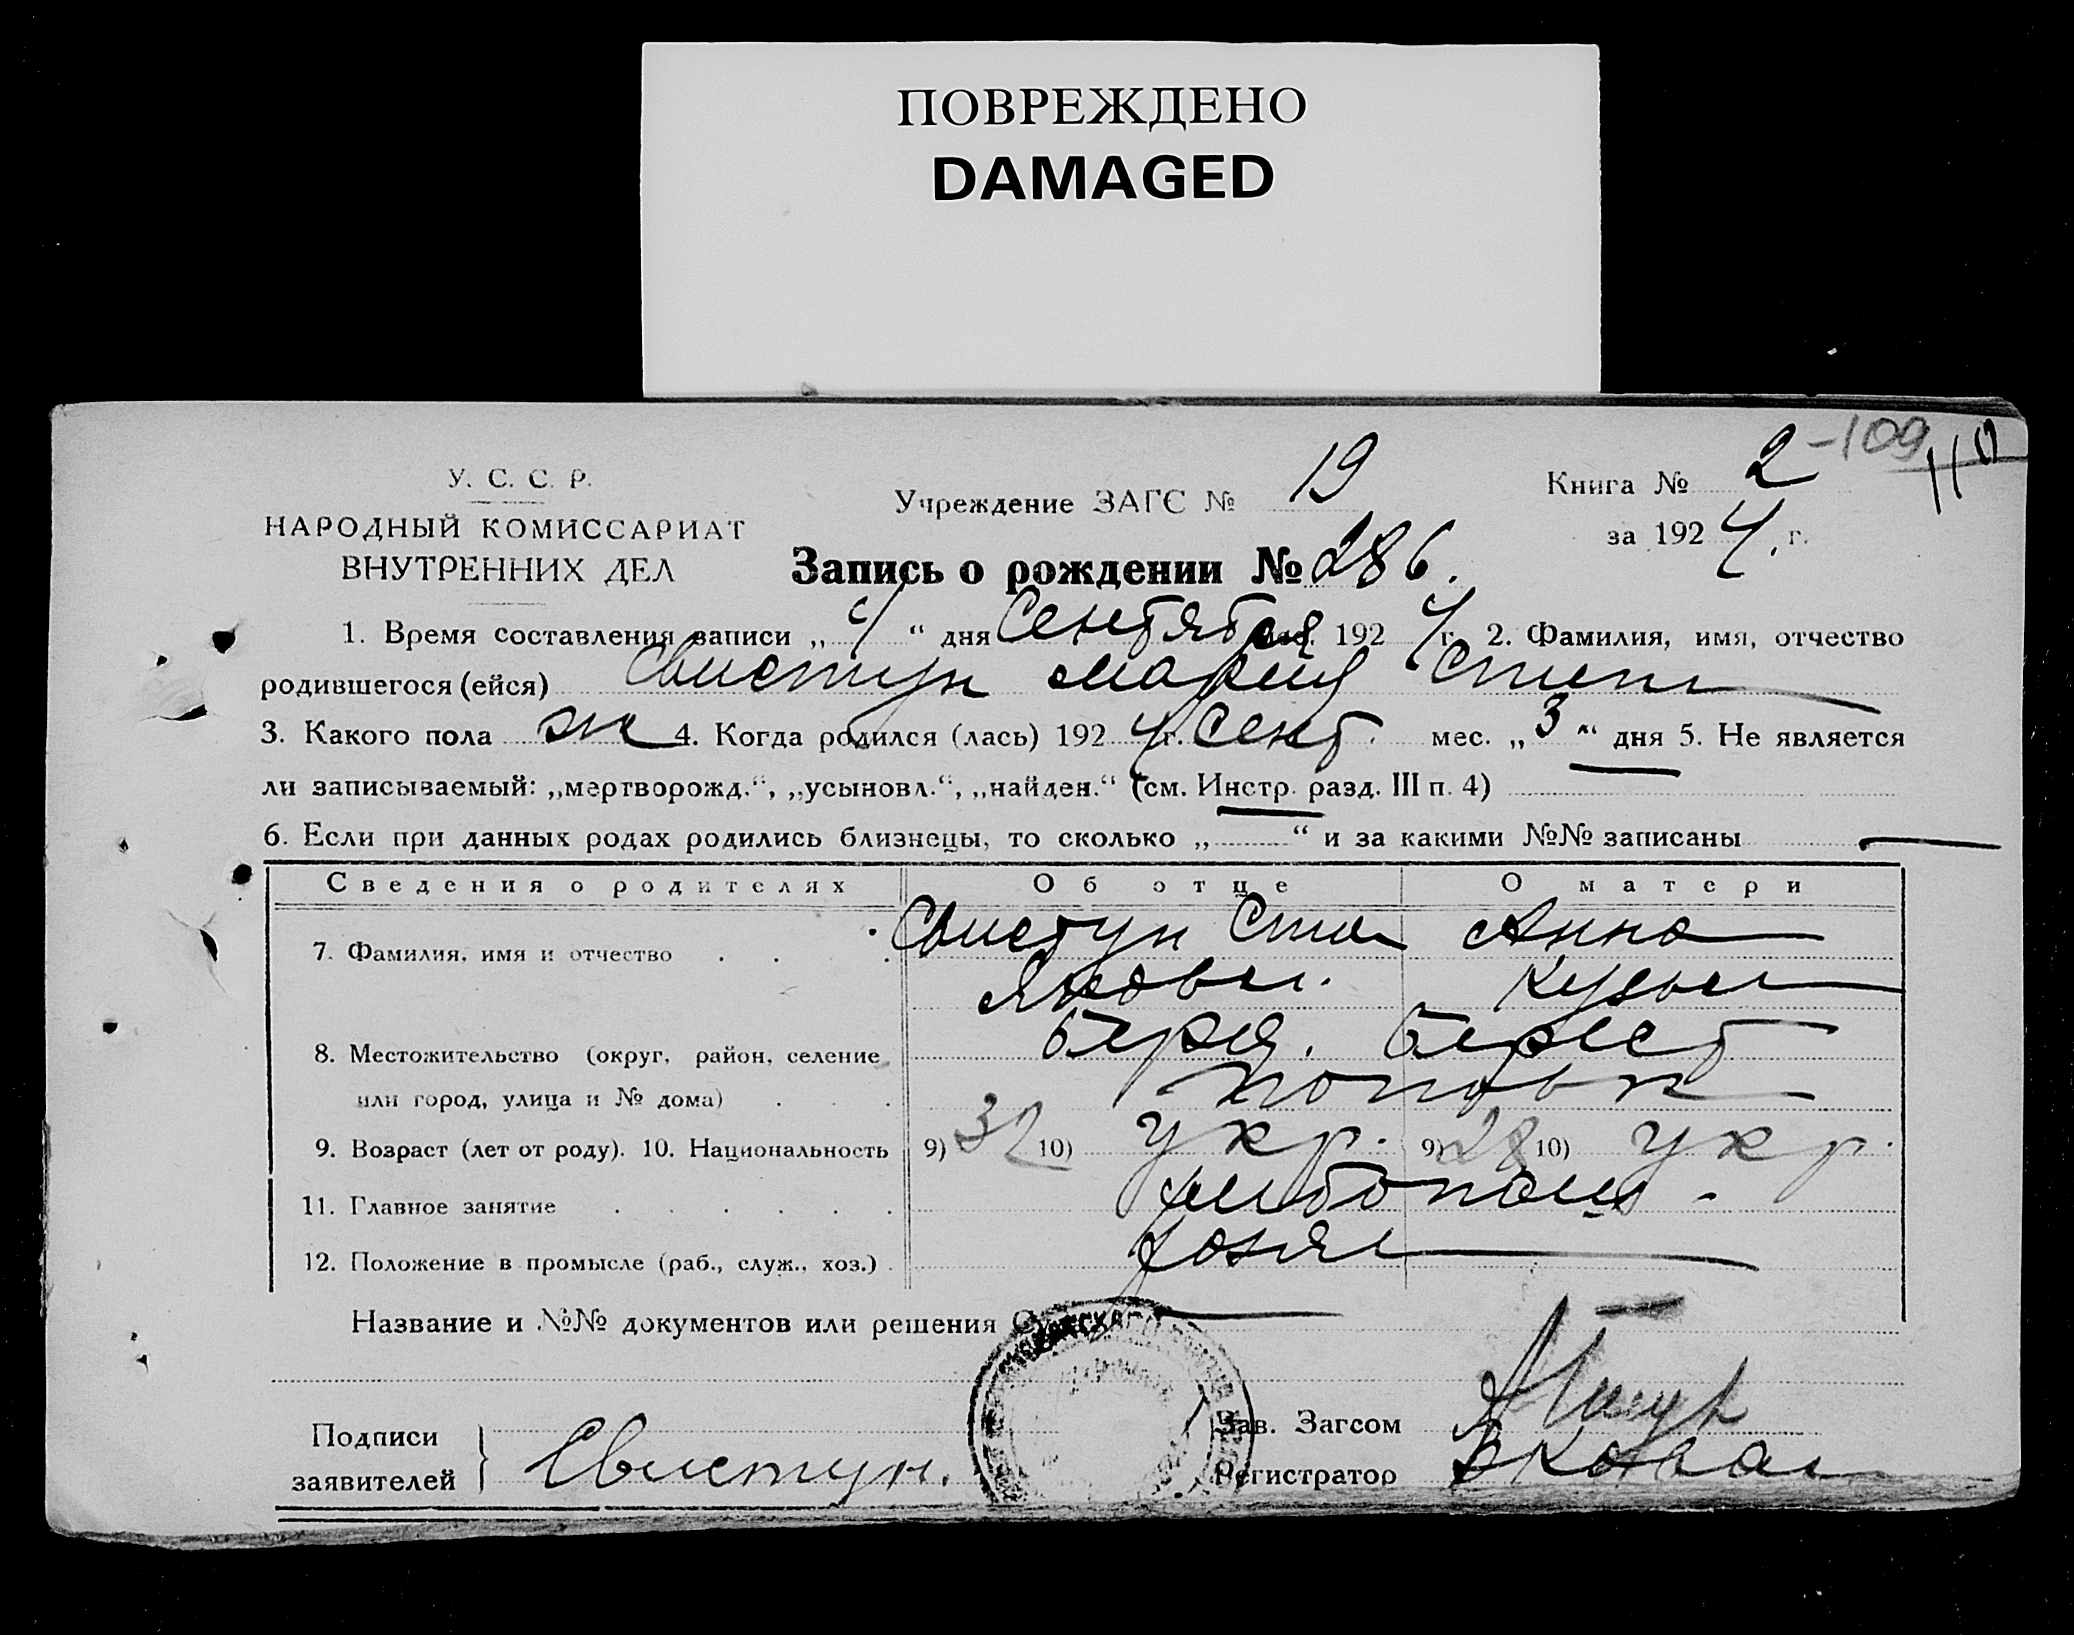 ПОВРЕЖДЕНО
DAMAGED
2 -109 110
У. С. С. Р.
НАРОДНЫЙ КОМИССАРИАТ
ВНУТРЕННИХ ДЕЛ
Учреждение ЗАГС № 19
Книга № 2
за 1924 г.
Запись о рождении № 286.
1. Время составления записи „ 4 “ дня Сентября мес. 1924 г. 2. Фамилия, имя, отчество
родившегося (ейся) Свистун Мария Степ
3. Какого пола ж 4. Когда родился (лась) 1924 г. Сент. мес. „ 3 “ дня 5. Не является
ли записываемый: „мертворожд.“, „усыновл.“, „найден.“ (см. Инстр. разд. III п. 4)
6. Если при данных родах родились близнецы, то сколько „ — “ и за какими №№ записаны —
Сведения о родителях Об отце О матери
7. Фамилия, имя и отчество Свистун Анна
Яковл. Кузьм
8. Местожительство (округ, район, селение Берд. Берест
или город, улица и № дома)
9. Возраст (лет от роду). 10. Национальность 9) 32 10) Укр. 9) 28 10) Укр.
11. Главное занятие хлебопаш.
12. Положение в промысле (раб., служ., хоз.) хозяин
Название и №№ документов или решения
Подписи
заявителей Свистун.
Зав. Загсом
Регистратор